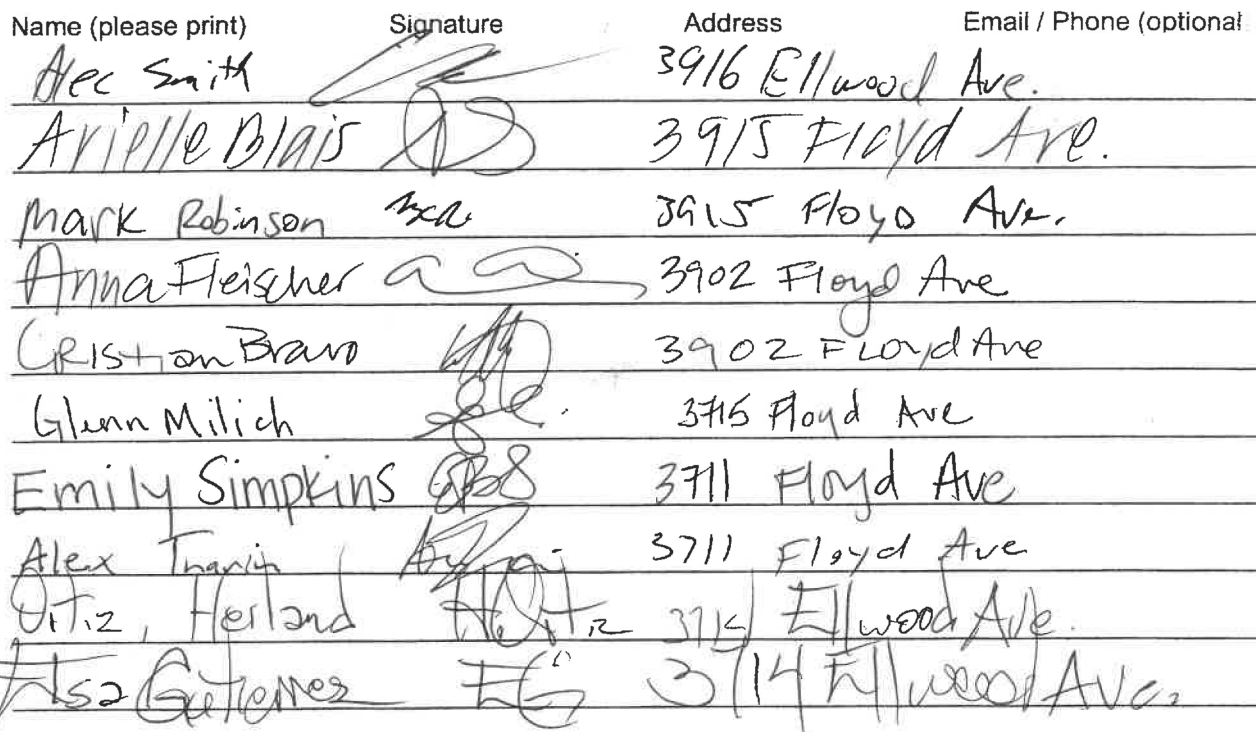 Name (please print) Signature Address Email / Phone (optional
Alec Smith 3916 Ellwood Ave.
Arielle Blais AB 3915 Floyd Ave.
Mark Robinson 3915 Floyd Ave.
Anna Fleischer 3902 Floyd Ave
Cristian Bravo 3902 Floyd Ave
Glenn Milich 3715 Floyd Ave
Emily Simpkins 3711 Floyd Ave
Alex 3711 Floyd Ave
Ortiz, Herland HOrtiz Ellwood Ave.
Elsa Gutierrez EG 3714 Ellwood Ave.